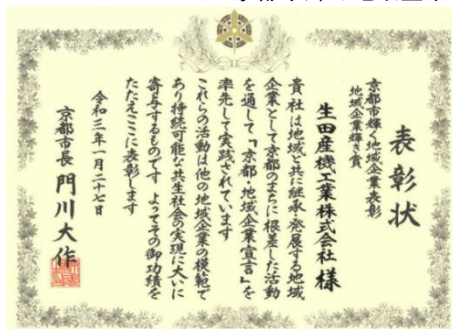 表彰状
京都市輝く地域企業表彰
地域企業輝き賞
生田産機工業株式会社 様
貴社は地域と共に継承・発展する地域
企業として京都のまちに根差した活動
を通して「京都・地域企業宣言」を
率先して実践されています
これらの活動は他の地域企業の模範で
あり持続可能な共生社会の実現に大いに
寄与するものです よってその御功績を
たたえここに表彰します
令和三年一月二十七日
京都市長 門川大作